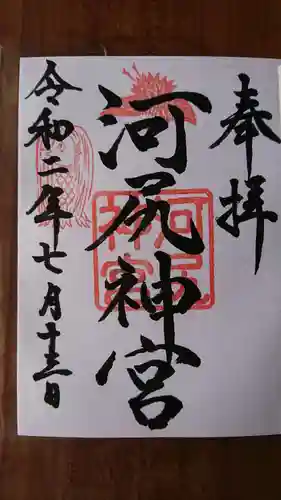 奉拝
河尻神宮
令和二年七月十三日
河尻神宮